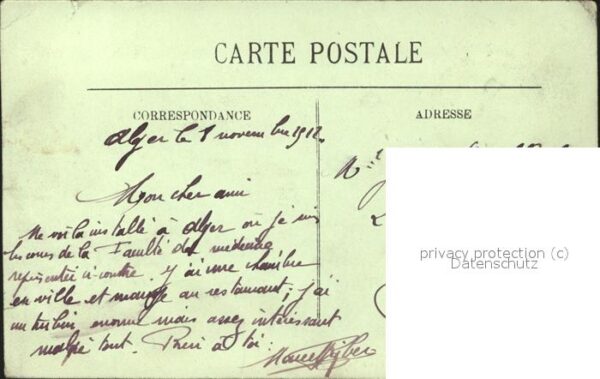 CARTE POSTALE
CORRESPONDANCE
ADRESSE
Alger le 1 novembre 1912
Mon cher ami
Me voilà installé à Alger où je suis
les cours de la Faculté de médecine
représentée ci contre. J'ai une chambre
en ville et mange au restaurant ; j'ai
un turbin énorme mais assez intéressant
malgré tout. Bien à toi.
Marcel
privacy protection (c)
Datenschutz